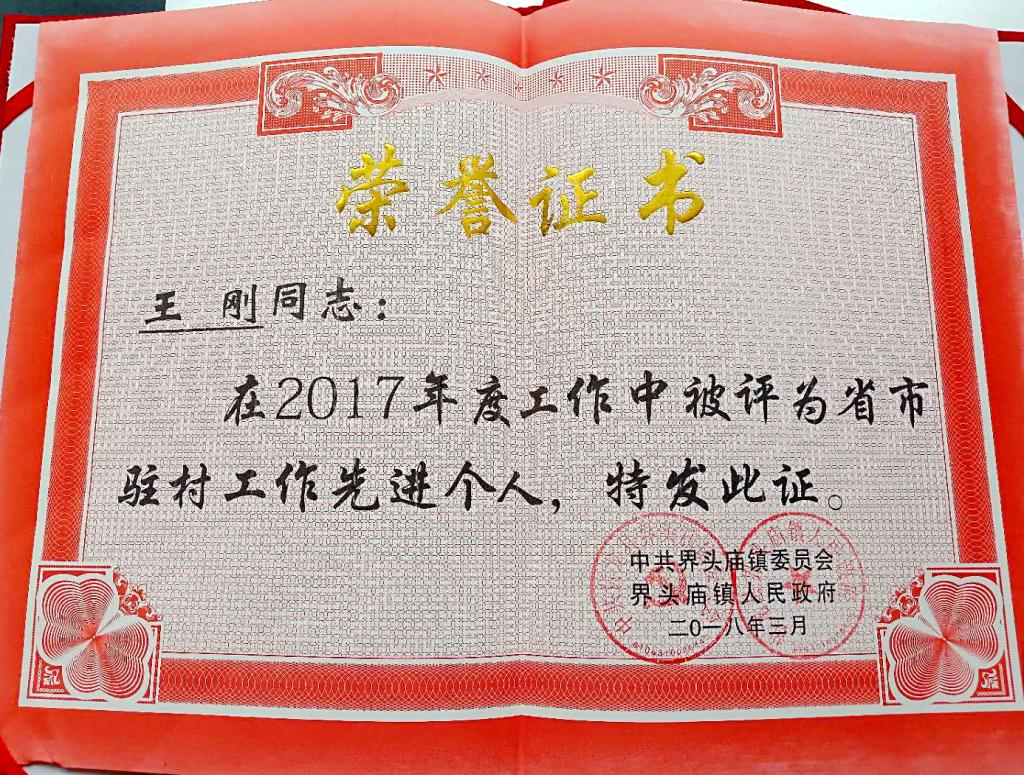 荣誉证书
王 刚同志：
在2017年度工作中被评为省市
驻村工作先进个人，特发此证。
中共界头庙镇委员会
界头庙镇人民政府
二0一八年三月